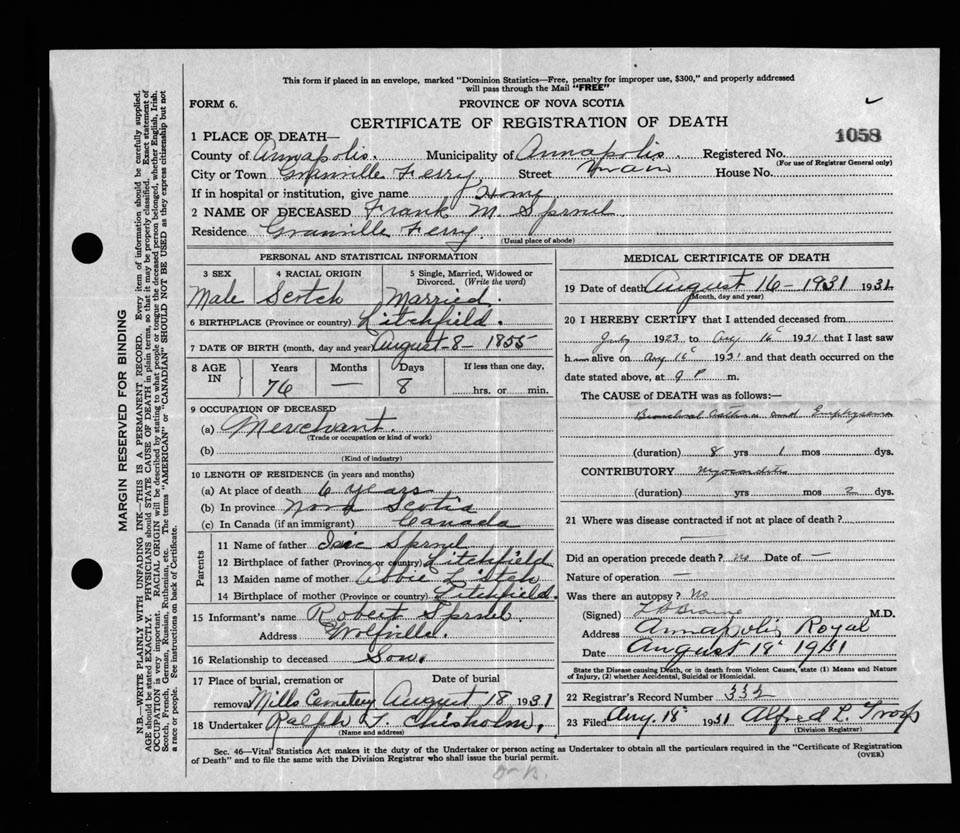 This form if placed in an envelope, marked "Dominion Statistics—Free, penalty for improper use, $300," and properly addressed
will pass through the Mail "FREE"
FORM 6.
PROVINCE OF NOVA SCOTIA
CERTIFICATE OF REGISTRATION OF DEATH
1058
1 PLACE OF DEATH—
County of Annapolis. Municipality of Annapolis. Registered No.
(For use of Registrar General only)
City or Town Granville Ferry Street Main House No.
If in hospital or institution, give name Home
2 NAME OF DECEASED Frank M. Sprnel
Residence Granville Ferry.
(Usual place of abode)
PERSONAL AND STATISTICAL INFORMATION
3 SEX 4 RACIAL ORIGIN 5 Single, Married, Widowed or Divorced. (Write the word)
Male Scotch Married.
6 BIRTHPLACE (Province or country) Litchfield.
7 DATE OF BIRTH (month, day and year) August-8-1855
8 AGE IN Years Months Days If less than one day,
76 — 8 hrs. or min.
9 OCCUPATION OF DECEASED
(a) Merchant.
(Trade or occupation or kind of work)
(b)
(Kind of industry)
10 LENGTH OF RESIDENCE (in years and months)
(a) At place of death 6 years
(b) In province Nova Scotia
(c) In Canada (if an immigrant) Canada
Parents
11 Name of father Sprnel
12 Birthplace of father (Province or country) Litchfield
13 Maiden name of mother Abbie
14 Birthplace of mother (Province or country) Litchfield.
15 Informant's name Robert Sprnel.
Address Wolfville.
16 Relationship to deceased Son.
17 Place of burial, cremation or Date of burial
removal Mills Cemetery August 18 1931
18 Undertaker Ralph T. Chisholm.
(Name and address)
MEDICAL CERTIFICATE OF DEATH
19 Date of death August 16-1931 1931
(Month, day and year)
20 I HEREBY CERTIFY that I attended deceased from
July 1923 to Aug 16 1931 that I last saw
h alive on Aug 16 1931 and that death occurred on the
date stated above, at 9 P. m.
The CAUSE OF DEATH was as follows:—
Bronchial Asthma and Emphysema
(duration) 8 yrs 1 mos dys.
CONTRIBUTORY Myocarditis
(duration) yrs mos 2 dys.
21 Where was disease contracted if not at place of death?
Did an operation precede death? No Date of —
Nature of operation —
Was there an autopsy? No
(Signed) L B Braine M.D.
Address Annapolis Royal
Date August 18 1931
State the Disease causing Death, or in death from Violent Causes, state (1) Means and Nature
of Injury, (2) whether Accidental, Suicidal or Homicidal.
22 Registrar's Record Number 332
23 Filed Aug. 18 1931 Alfred L. Troop
(Division Registrar)
Sec. 46—Vital Statistics Act makes it the duty of the Undertaker or person acting as Undertaker to obtain all the particulars required in the "Certificate of Registration
of Death" and to file the same with the Division Registrar who shall issue the burial permit.
(OVER)
MARGIN RESERVED FOR BINDING
N.B.—WRITE PLAINLY WITH UNFADING INK—THIS IS A PERMANENT RECORD. Every item of information should be carefully supplied.
AGE should be stated EXACTLY. PHYSICIANS should STATE CAUSE OF DEATH in plain terms, so that it may be properly classified. Exact statement of
OCCUPATION is very important. RACIAL ORIGIN will be described by stating to what people or tongue the deceased person belonged, whether English, Irish,
Scotch, French, German, Russian, Ruthenian, etc. The terms "AMERICAN" or "CANADIAN" SHOULD NOT BE USED as they express citizenship but not
a race or people. See instructions on back of Certificate.